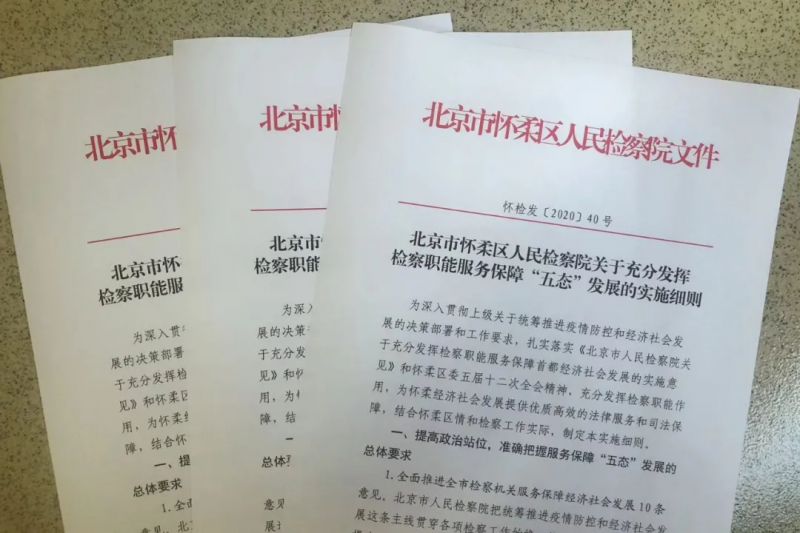 北京市怀
北京市怀
检察职能服
为深入贯
展的决策部署
于充分发挥检
见》和怀柔区
用，为怀柔经
障，结合怀
一、提
总体要求
1.全
意见，北京
北京市怀
北京市怀
检察职能服
为深入
展的决策
于充分发
见》和怀
用，为
障，结
一、
总体要
1
意见
展
北京市怀柔区人民检察院文件
怀检发〔2020〕40号
北京市怀柔区人民检察院关于充分发挥
检察职能服务保障“五态”发展的实施细则
为深入贯彻上级关于统筹推进疫情防控和经济社会发
展的决策部署和工作要求，扎实落实《北京市人民检察院关
于充分发挥检察职能服务保障首都经济社会发展的实施意
见》和怀柔区委五届十二次全会精神，充分发挥检察职能作
用，为怀柔经济社会发展提供优质高效的法律服务和司法保
障，结合怀柔区情和检察工作实际，制定本实施细则。
一、提高政治站位，准确把握服务保障“五态”发展的
总体要求
1.全面推进全市检察机关服务保障经济社会发展10条
意见。北京市人民检察院把统筹推进疫情防控和经济社会发
展这条主线贯穿各项检察工作